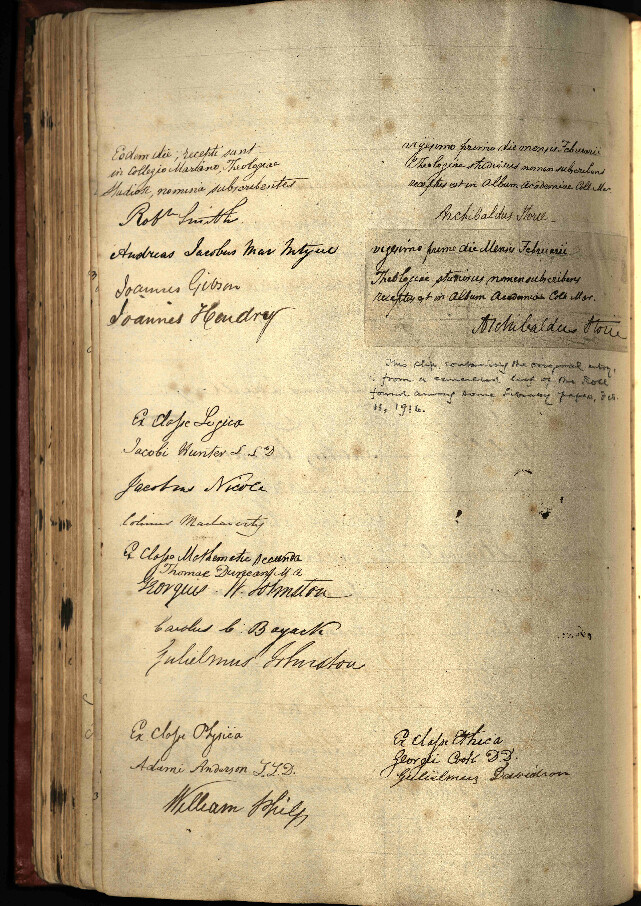 Eodem die, recepti sunt
in Collegio Mariano, Theologiae
Studiosi, nomina subscribentes
Robt. Smith.
Andreas Jacobus Mar
Joannes Gibson
Joannes Hendry
Ex Classe Logica
Jacobi Hunter L.L.D
Jacobus Nicole
Colinus
Ex Classe Mathematic Secunda
Thomae Duncan, M A
Georgius W. Johnston
Carolus C. Boyack
Gulielmus Johnston
Ex Classe Physica
Adami Anderson L.L.D.
William Philp
vigesimo primo die mensis Februarii
Theologiae studiosus nomen subscribens
receptus est in Album Academiae Coll. Mar.
Archibaldus
vigesimo primo die Mensis Februarii
Theologiae studiosus nomen subscribens
receptus est in Album Academiae Coll Mar.
Archibaldus
This slip, containing the original entry,
from a cancelled leaf of the Roll
found among some Library papers, Feb.
1916.
Ex Classe Ethica
Georgii Cook D.D.
Gulielmus Davidson